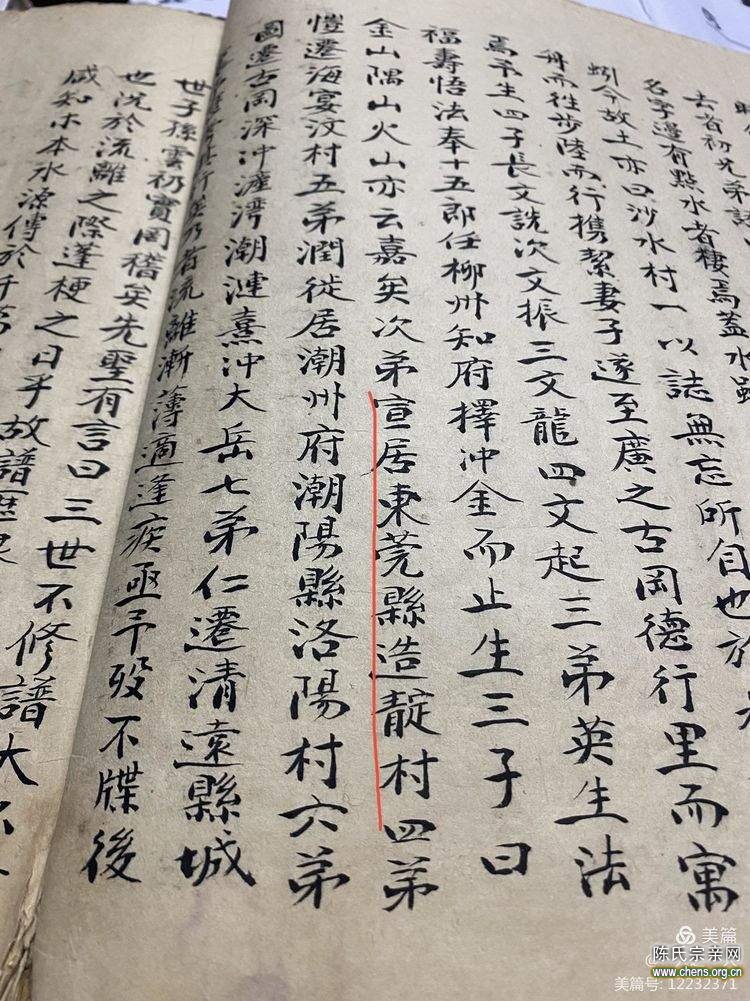 去者初兄弟
名字邊有點水者棲焉蓋水
蚓今故土亦曰沙水村一以誌無忘所自也於
舟而往步陸而行携挈妻子遂至廣之古岡德行里而寓
焉予生四子長文詵次文振三文龍四文起三弟英生法
福壽悟法奉十五郎任柳州知府擇沖金而止生三子曰
金山隅山火山亦云嘉矣次弟宣居東莞縣造靛村四弟
愷遷海宴汶村五弟潤徙居潮州府潮陽縣洛陽村六弟
國遷古岡深沖滘灣潮漣熹沖大岳七弟仁遷清遠縣城
流離漸薄適逢疾亟予歿不牒後
世子孫雲礽實罔稽矣先聖有言曰三世不修譜
也况於流離之際蓬梗之日乎故譜
咸知木本水源傳於千
美篇
陈氏宗亲网
www.chens.org.cn
美篇号: 12232371